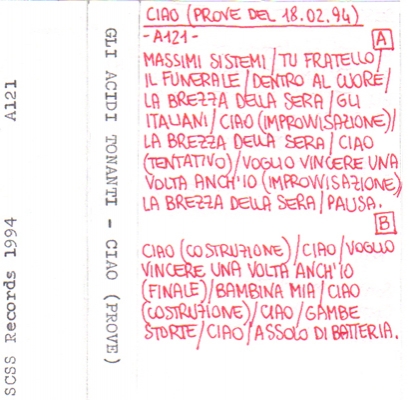 CIAO (PROVE DEL 18.02.94)
-A121-
A
MASSIMI SISTEMI/TU FRATELLO/
IL FUNERALE/DENTRO AL CUORE/
LA BREZZA DELLA SERA/GLI
ITALIANI/CIAO (IMPROVVISAZIONE)/
LA BREZZA DELLA SERA/CIAO
(TENTATIVO)/VOGLIO VINCERE UNA
VOLTA ANCH'IO (IMPROVVISAZIONE)
LA BREZZA DELLA SERA/PAUSA.
B
CIAO (COSTRUZIONE)/CIAO/VOGLIO
VINCERE UNA VOLTA ANCH'IO
(FINALE)/BAMBINA MIA/CIAO
(COSTRUZIONE)/CIAO/GAMBE
STORTE/CIAO/ASSOLO DI BATTERIA.
GLI ACIDI TONANTI - CIAO (PROVE)
SCSS Records 1994 A121